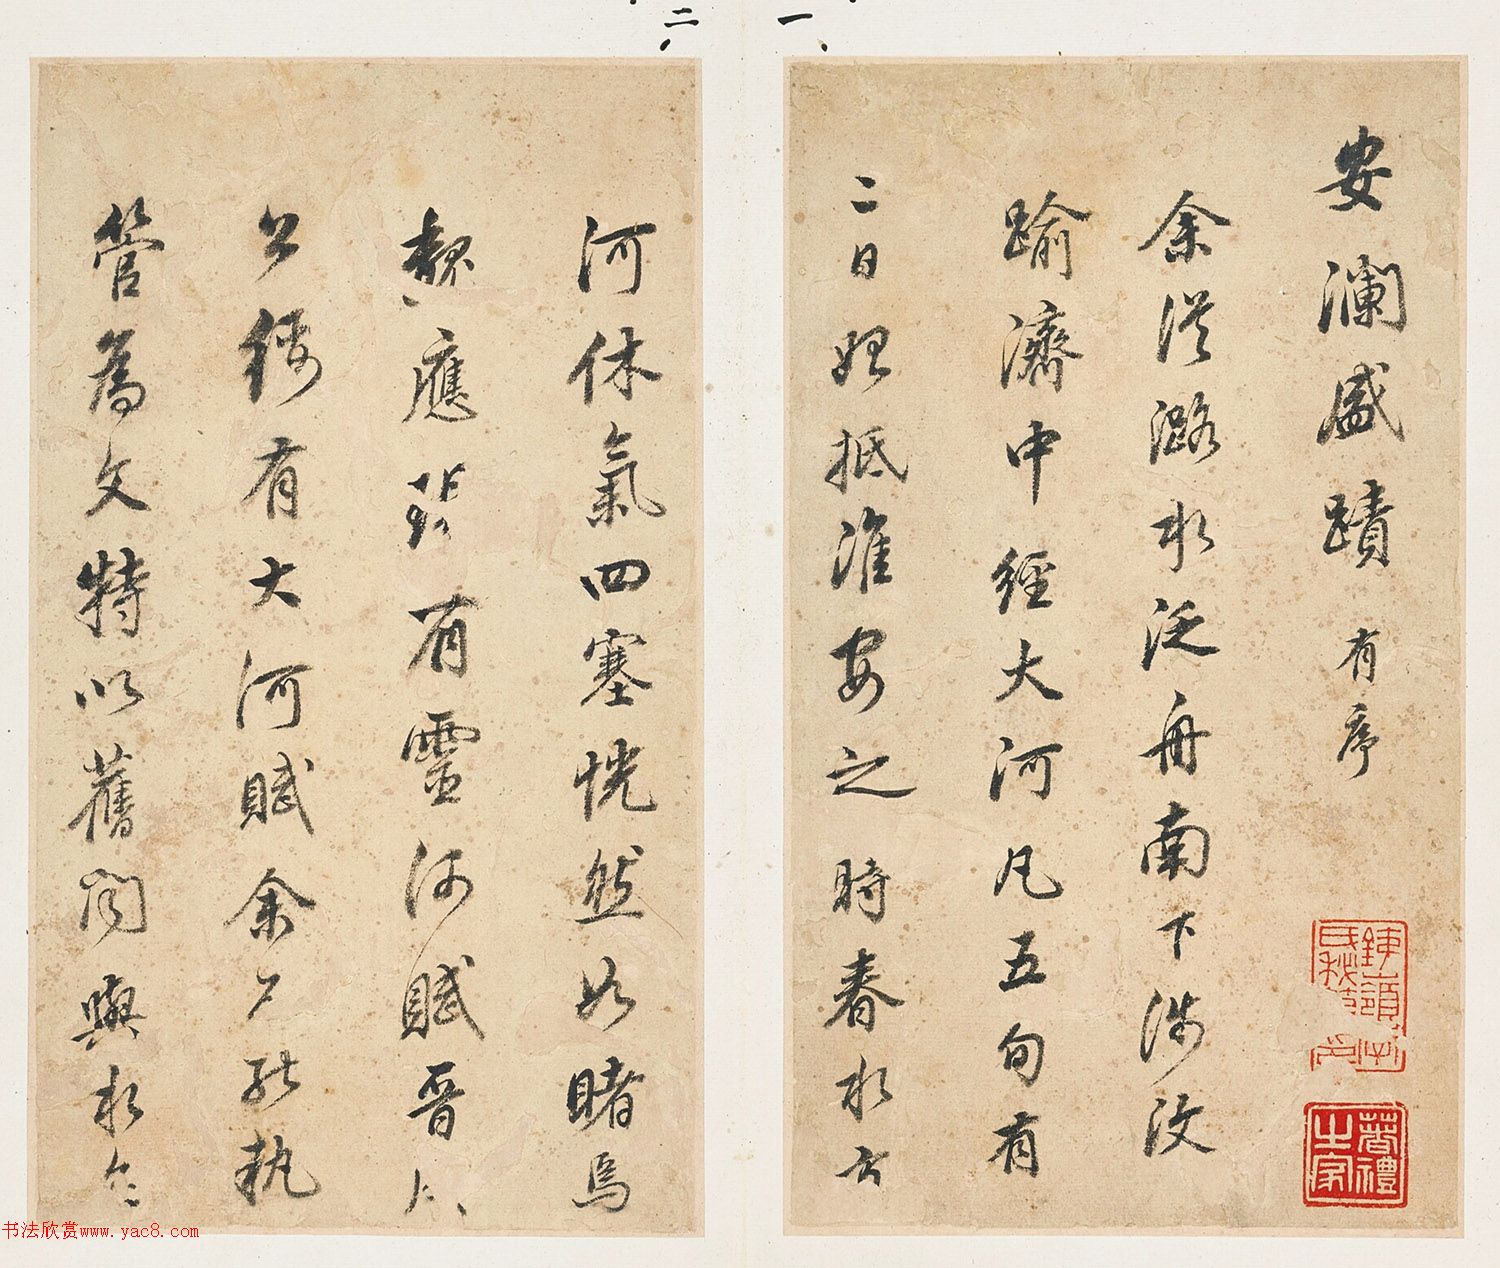 一
安瀾盛蹟 有序
余從潞水泛舟南下涉汶
踰濟中經大河凡五旬有
二日始抵淮安之時春水方
二
河休氣四塞恍然如睹焉
魏應瑒有靈河賦晉成
公綏有大河賦余不能執
管為文特以舊聞與水
书法欣赏www.yac8.com